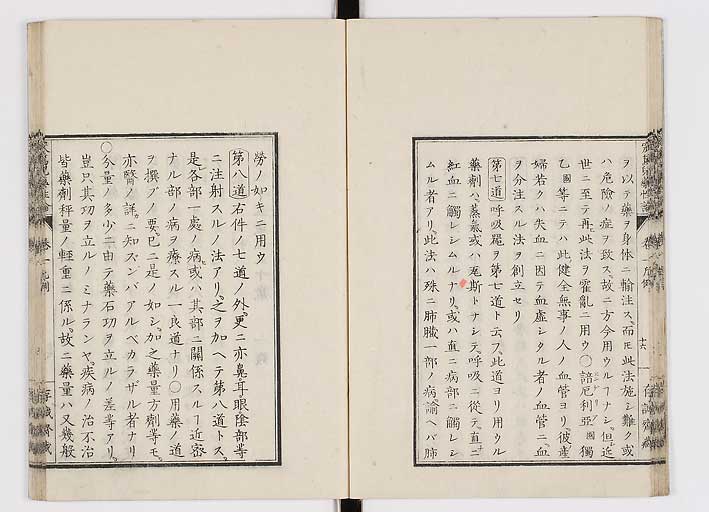 ヲ以テ藥ヲ身体ニ輸注ス。而モ此法施シ難ク或
ハ危險ノ症ヲ致ス。故ニ方今用ウルヿナシ。但近
世ニ至テ再此法ヲ霍亂ニ用ウ〇諳厄利亞國獨
乙國等ニテハ此健全無事ノ人ノ血管ヨリ彼産
婦若クハ失血ニ因テ血虚シタル者ノ血管ニ血
ヲ分注スル法ヲ創立セリ
第七道呼吸器ヲ第七道ト云フ此道ヨリ用ウル
藥劑ハ蒸氣或ハ瓦斯トナシテ呼吸ニ從テ直ニ
紅血ニ觸レシムルナリ。或ハ直ニ病部ニ觸レシ
ムル者アリ。此法ハ殊ニ肺臓一部ノ病諭ヘバ肺
十六
存誠齋藏
勞ノ如キニ用ウ
第八道右件ノ七道ノ外更ニ亦鼻耳眼陰部等
ニ注射スルノ法アリ。之ヲ加ヘテ第八道トス。
是各部一處ノ病或ハ其部ニ關係スルヿ近密
ナル部ノ病ヲ療スル一良道ナリ〇用藥ノ道
ヲ撰ブノ要已ニ是ノ如シ。加之藥量方劑等モ
亦醫ノ詳ニ知ズンバアルベカラザル者ナリ
〇分量ノ多少ニ由テ藥石功ヲ立ルノ差等アリ。
豈只其功ヲ立ルノミナランヤ。疾病ノ治不治
皆藥劑秤量ノ輕重ニ係ル。故ニ藥量ハ又幾般
存誠齋藏